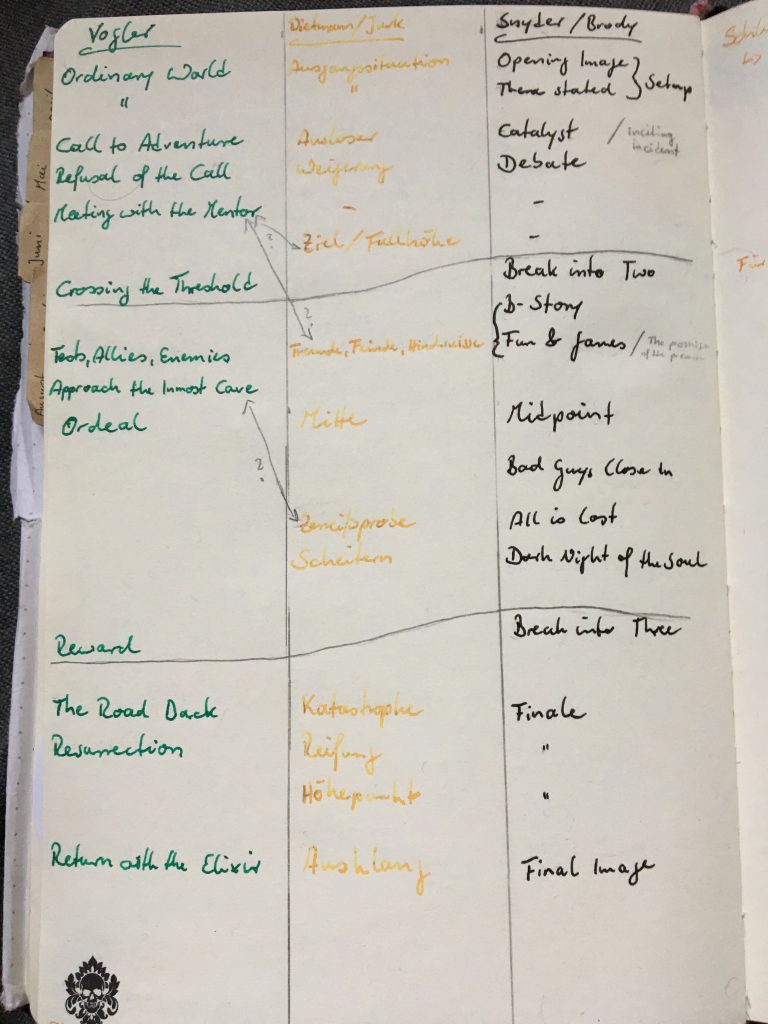 Vogler Dietmann/Junk Snyder/Brody
Ordinary World Ausgangssituation Opening Image
" " Theme stated } Setup
Call to Adventure Auslöser Catalyst / inciting incident
Refusal of the Call Weigerung Debate
Meeting with the Mentor - -
? Ziel/Fallhöhe -
Crossing the Threshold Break into Two
? B-Story
Tests, Allies, Enemies Freunde, Feinde, Hindernisse Fun & Games / The promise of the premise
Approach the Inmost Cave
Ordeal Mitte Midpoint
? Bad Guys Close In
Zerreißprobe All is Lost
Scheitern Dark Night of the Soul
Reward Break into Three
The Road Back Katastrophe Finale
Resurrection Reifung "
Höhepunkt "
Return with the Elixir Ausklang Final Image
Mai
Juni
August